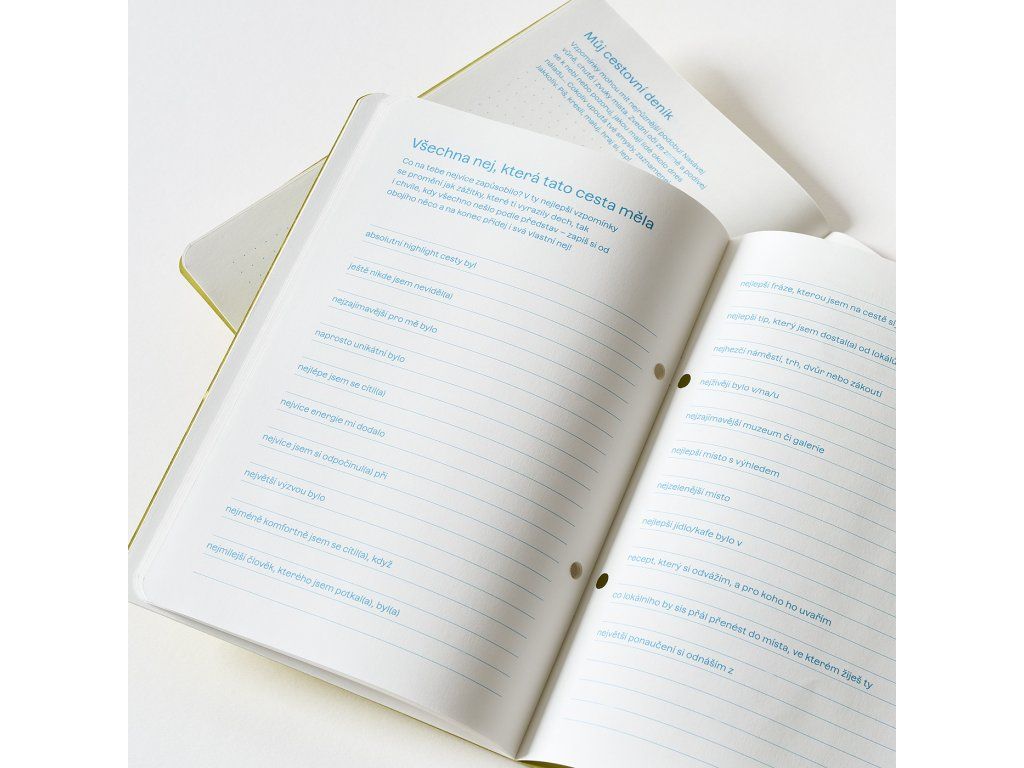 Můj cestovní deník
Vzpomínky mohou mít nejrůznější podobu! Nasávej
vůně, chutě i zvuky místa. Zvedni oči ze země a podívej
se k nebi nebo pozoruj, jakou mají lidé okolo dnes
náladu... Cokoliv upoutá tvé smysly, zaznamenej
jakkoliv. Piš, kresli, maluj, hraj si, lep!
Všechna nej, která tato cesta měla
Co na tebe nejvíce zapůsobilo? V ty nejlepší vzpomínky
se promění jak zážitky, které ti vyrazily dech, tak
i chvíle, kdy všechno nešlo podle představ – zapiš si od
obojího něco a na konec přidej i svá vlastní nej!
absolutní highlight cesty byl
ještě nikde jsem neviděl(a)
nejzajímavější pro mě bylo
naprosto unikátní bylo
nejlépe jsem se cítil(a)
nejvíce energie mi dodalo
nejvíce jsem si odpočinul(a) při
největší výzvou bylo
nejméně komfortně jsem se cítil(a), když
nejmilejší člověk, kterého jsem potkal(a), byl(a)
nejlepší fráze, kterou jsem na cestě
nejlepší tip, který jsem dostal(a) od lokálů
nejhezčí náměstí, trh, dvůr nebo zákoutí
nejživěji bylo v/na/u
nejzajímavější muzeum či galerie
nejlepší místo s výhledem
nejzelenější místo
nejlepší jídlo/kafe bylo v
recept, který si odvážím, a pro koho ho uvařím
co lokálního by sis přál přenést do místa, ve kterém žiješ ty
největší ponaučení si odnáším z